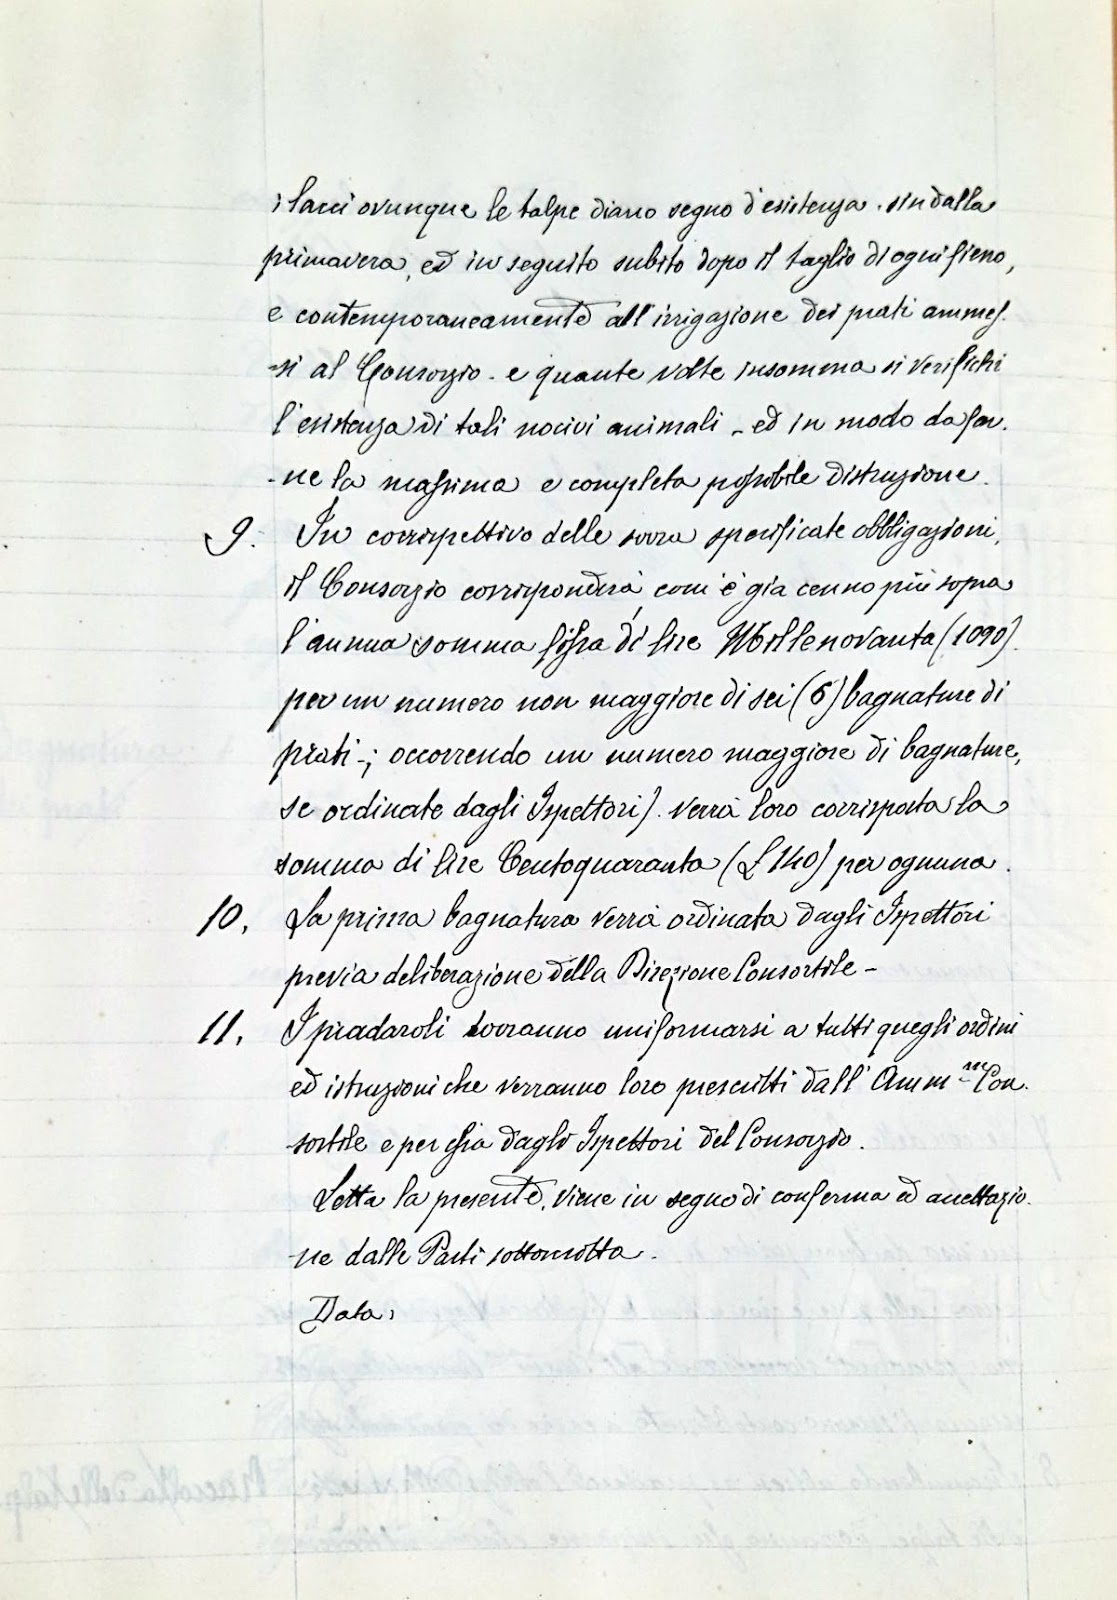 i lacci ovunque le talpe diano segno d'esistenza. sin dalla
primavera, ed in seguito subito dopo il taglio di ogni fieno,
e contemporaneamente all'irrigazione dei prati ammes-
-si al Consorzio - e quante volte insomma si verifichi
l'esistenza di tali nocivi animali - ed in modo da far-
-ne la massima e completa possibile distruzione.
9. In corrispettivo delle sovra specificate obbligazioni,
il Consorzio corrisponderà, com'è già cenno più sopra
l'annua somma fissa di lire Millenovanta (1090)
per un numero non maggiore di sei (6) bagnature di
prati -; occorrendo un numero maggiore di bagnature,
se ordinate dagli Ispettori). verrà loro corrisposta la
somma di lire Centoquaranta (£ 140) per ognuna.
10. La prima bagnatura verrà ordinata dagli Ispettori
previa deliberazione della Direzione Consortile -
11. I pradaroli dovranno uniformarsi a tutti quegli ordini
ed istruzioni che verranno loro prescritti dall'Amm.ne Con-
-sortile e per essa dagli Ispettori del Consorzio.
Letta la presente, viene in segno di conferma ed accettazio-
-ne dalle Parti sottoscritta.
Data,